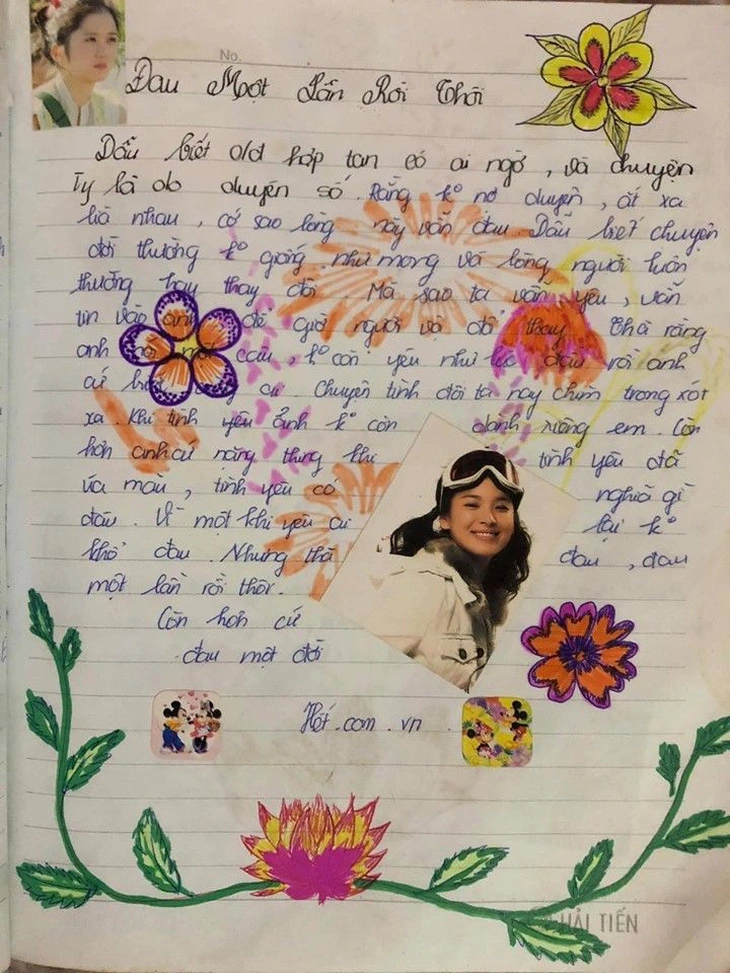 No.
Đau Một Lần Rồi Thôi
Dẫu biết old hợp tan có ai ngờ, và chuyện
Ty là do duyên số. Rằng k° nợ duyên, ắt xa
lià nhau, cớ sao lòng này vẫn đau. Dẫu biết chuyện
đời thường k° giống như mong và lòng người luôn
thường hay thay đổi. Mà sao ta vẫn yêu, vẫn
tin vào anh để giờ người vội đổi thay. Thà rằng
anh nói một câu, k° còn yêu như lúc đầu rồi anh
cứ cu. Chuyện tình đôi ta nay chìm trong xót
xa. Khi tình yêu anh k° còn dành riêng em. Còn
hơn anh cứ nặng thung khi tình yêu đã
úa màu, tình yêu có nghĩa gì
đâu. Vì một khi yêu ai lại k°
khổ đau. Nhưng thà đau, đau
một lần rồi thôi.
Còn hơn cứ
đau một đời
Hết.com.vn.
HẢI TIẾN